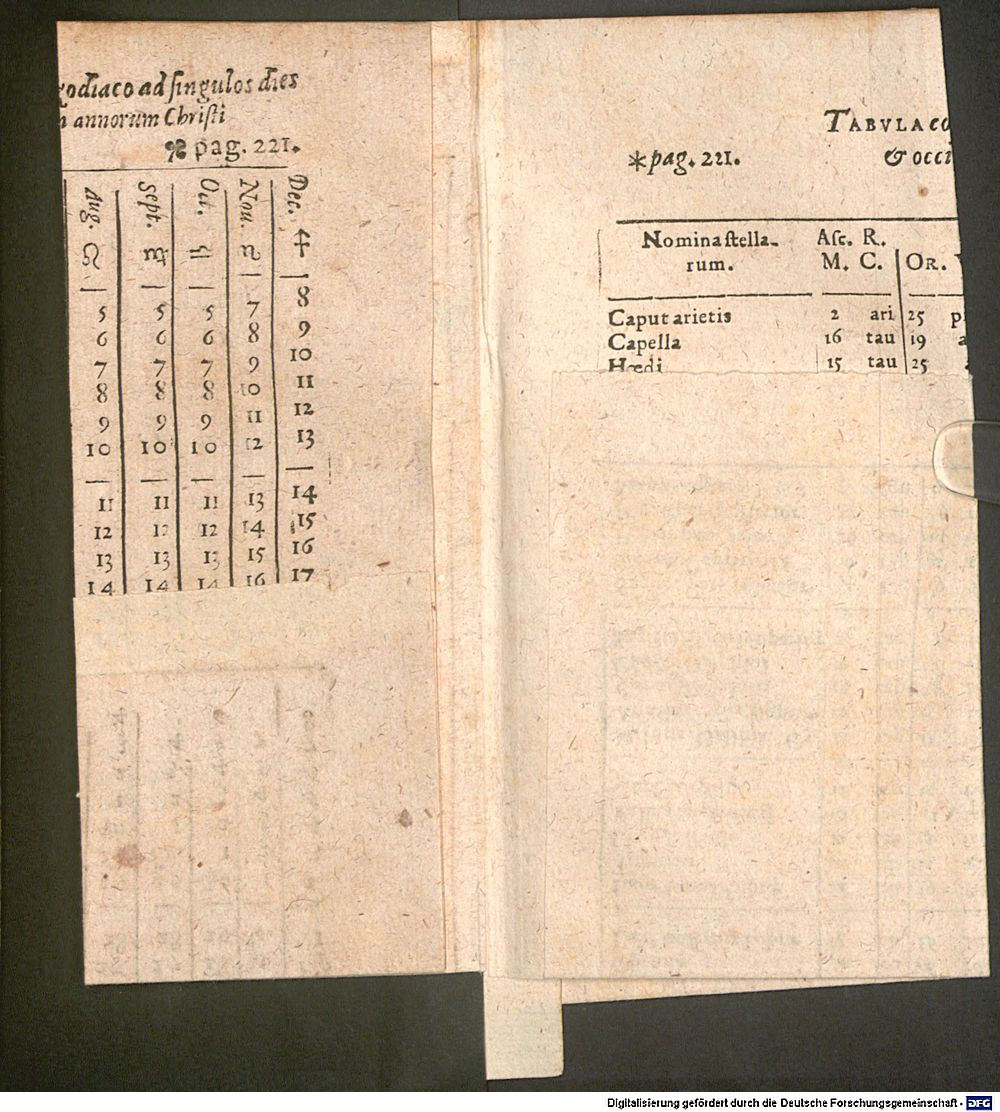 zodiaco ad singulos dies
annorum Christi
pag. 221.
Aug. Sept. Oct. Nou. Dec.
♌ ♍ ♎ ♏ ♐
5 5 5 7 8
6 6 6 8 9
7 7 7 9 10
8 8 8 10 11
9 9 9 11 12
10 10 10 12 13
11 11 11 13 14
12 12 12 14 15
13 13 13 15 16
14 14 14 16 17
TABVLA
*pag. 221. & occi
Nomina stella- Asc. R.
rum. M. C. OR.
Caput arietis 2 ari 25
Capella 16 tau 19
Hœdi 15 tau 25
Digitalisierung gefördert durch die Deutsche Forschungsgemeinschaft - DFG